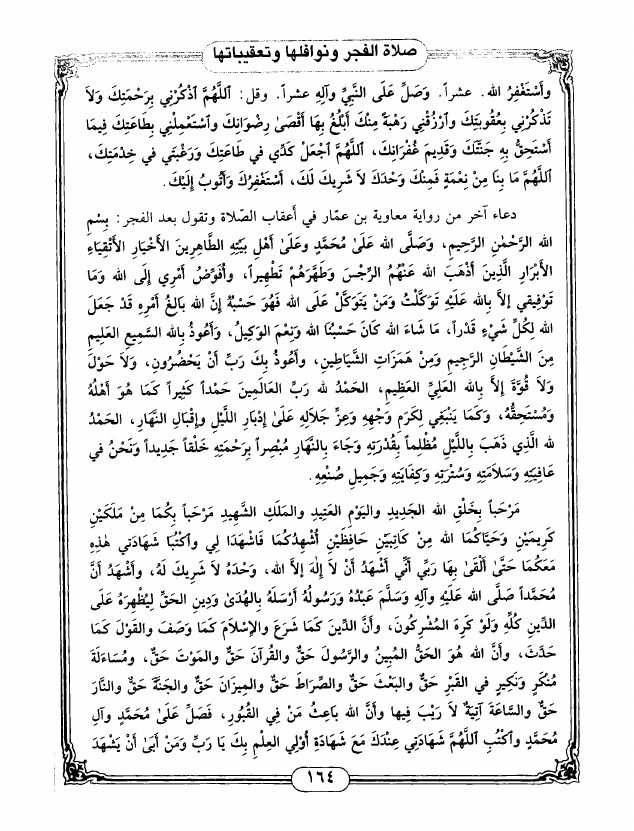 صلاة الفجر ونوافلها وتعقيباتها
وأَسْتَغْفِرُ الله. عشراً. وَصَلِّ عَلَى النَّبِيِّ وآلِهِ عشراً. وقل: اَللَّهُمَّ اَذْكُرْنِي بِرَحْمَتِكَ وَلَا
تَذْكُرْنِي بِعُقُوبَتِكَ وأَرْزُقْنِي رَهْبَةً مِنْكَ أَبْلُغُ بِهَا أَقْصَىٰ رِضْوَانِكَ وأَسْتَعْمِلْنِي بِطَاعَتِكَ فِيمَا
أَسْتَحِقُّ بِهِ جَنَّتَكَ وَقَدِيمَ غُفْرَانِكَ، اَللَّهُمَّ اَجْعَلْ كَدِّي فِي طَاعَتِكَ وَرَغْبَتِي فِي خِدْمَتِكَ،
اَللَّهُمَّ مَا بِنَا مِنْ نِعْمَةٍ فَمِنْكَ وَحْدَكَ لَا شَرِيكَ لَكَ، أَسْتَغْفِرُكَ وَأَتُوبُ إِلَيْكَ.
دعاء آخر من رواية معاوية بن عمّار في أعقاب الصّلاة وتقول بعد الفجر: بِسْمِ
الله الرَّحْمٰنِ الرَّحِيمِ، وَصَلَّى الله عَلَىٰ مُحَمَّدٍ وعَلَىٰ أَهْلِ بَيْتِهِ الطَّاهِرِينَ الأَخْيَارِ الأَتْقِيَاءِ
الأَبْرَارِ الَّذِينَ أَذْهَبَ الله عَنْهُمُ الرِّجْسَ وَطَهَّرَهُمْ تَطْهِيراً، وأُفَوِّضُ أَمْرِي إِلَى الله وَمَا
تَوْفِيقِي إِلاَّ بِالله عَلَيْهِ تَوَكَّلْتُ وَمَنْ يَتَوَكَّلْ عَلَى الله فَهُوَ حَسْبُهُ إِنَّ الله بَالِغُ أَمْرِهِ قَدْ جَعَلَ
الله لِكُلِّ شَيْءٍ قَدْراً، مَا شَاءَ الله كَانَ حَسْبُنَا الله وَنِعْمَ الوَكِيلُ، وَأَعُوذُ بِالله السَّمِيعِ العَلِيمِ
مِنَ الشَّيْطَانِ الرَّجِيمِ وَمِنْ هَمَزَاتِ الشَّيَاطِينِ، وأَعُوذُ بِكَ رَبِّ أَنْ يَحْضُرُونِ، وَلَا حَوْلَ
وَلَا قُوَّةَ إِلاَّ بِالله العَلِيِّ العَظِيمِ، الحَمْدُ لله رَبِّ العَالَمِينَ حَمْداً كَثِيراً كَمَا هُوَ أَهْلُهُ
وَمُسْتَحِقُّهُ، وَكَمَا يَنْبَغِي لِكَرَمِ وَجْهِهِ وَعِزِّ جَلاَلِهِ عَلَىٰ إِدْبَارِ اللَّيْلِ وإِقْبَالِ النَّهَارِ، الحَمْدُ
لله الَّذِي ذَهَبَ بِاللَّيْلِ مُظْلِماً بِقُدْرَتِهِ وَجَاءَ بِالنَّهَارِ مُبْصِراً بِرَحْمَتِهِ خَلْقاً جَدِيداً وَنَحْنُ فِي
عَافِيَتِهِ وَسَلاَمَتِهِ وَسُتْرَتِهِ وَكِفَايَتِهِ وَجَمِيلِ صُنْعِهِ.
مَرْحَباً بِخَلْقِ الله الجَدِيدِ واليَوْمِ العَتِيدِ والمَلَكِ الشَّهِيدِ مَرْحَباً بِكُمَا مِنْ مَلَكَيْنِ
كَرِيمَيْنِ وَحَيَّاكُمَا الله مِنْ كَاتِبَيْنِ حَافِظَيْنِ أُشْهِدُكُمَا فَاشْهَدَا لِي وأكْتُبَا شَهَادَتِي هٰذِهِ
مَعَكُمَا حَتَّىٰ أَلْقَىٰ بِهَا رَبِّي أَنِّي أَشْهَدُ أَنْ لَا إِلٰهَ إِلاَّ الله، وَحْدَهُ لَا شَرِيكَ لَهُ، وأَشْهَدُ أَنَّ
مُحَمَّداً صَلَّى الله عَلَيْهِ وآلِهِ وَسَلَّمَ عَبْدُهُ وَرَسُولُهُ أَرْسَلَهُ بِالهُدَىٰ وَدِينِ الحَقِّ لِيُظْهِرَهُ عَلَى
الدِّينِ كُلِّهِ وَلَوْ كَرِهَ المُشْرِكُونَ، وأَنَّ الدِّينَ كَمَا شَرَعَ والإِسْلاَمَ كَمَا وَصَفَ والقَوْلَ كَمَا
حَدَّثَ، وأَنَّ الله هُوَ الحَقُّ المُبِينُ والرَّسُولَ حَقٌّ والقُرآنَ حَقٌّ والمَوْتَ حَقٌّ، ومُسَاءَلَةَ
مُنْكَرٍ وَنَكِيرٍ في القَبْرِ حَقٌّ والبَعْثَ حَقٌّ والصِّرَاطَ حَقٌّ والمِيزَانَ حَقٌّ والجَنَّةَ حَقٌّ والنَّارَ
حَقٌّ والسَّاعَةَ آتِيَةٌ لَا رَيْبَ فِيها وأَنَّ الله بَاعِثُ مَنْ فِي القُبُورِ، فَصَلِّ عَلَىٰ مُحَمَّدٍ وآلِ
مُحَمَّدٍ وأكْتُبِ اَللَّهُمَّ شَهَادَتِي عِنْدَكَ مَعَ شَهَادَةِ أُوْلِي العِلْمِ بِكَ يَا رَبِّ وَمَنْ أَبَىٰ أَنْ يَشْهَدَ
١٦٤